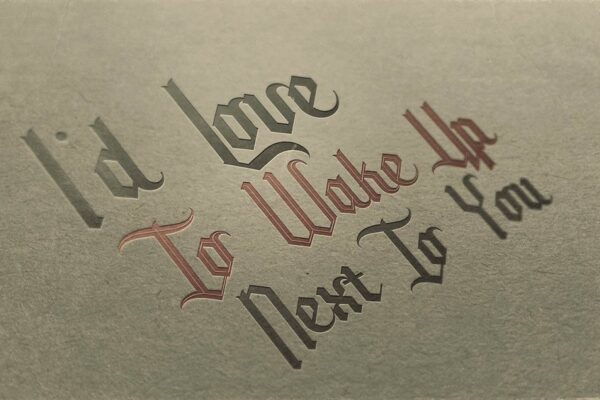 I'd Love
To Wake Up
Next To You